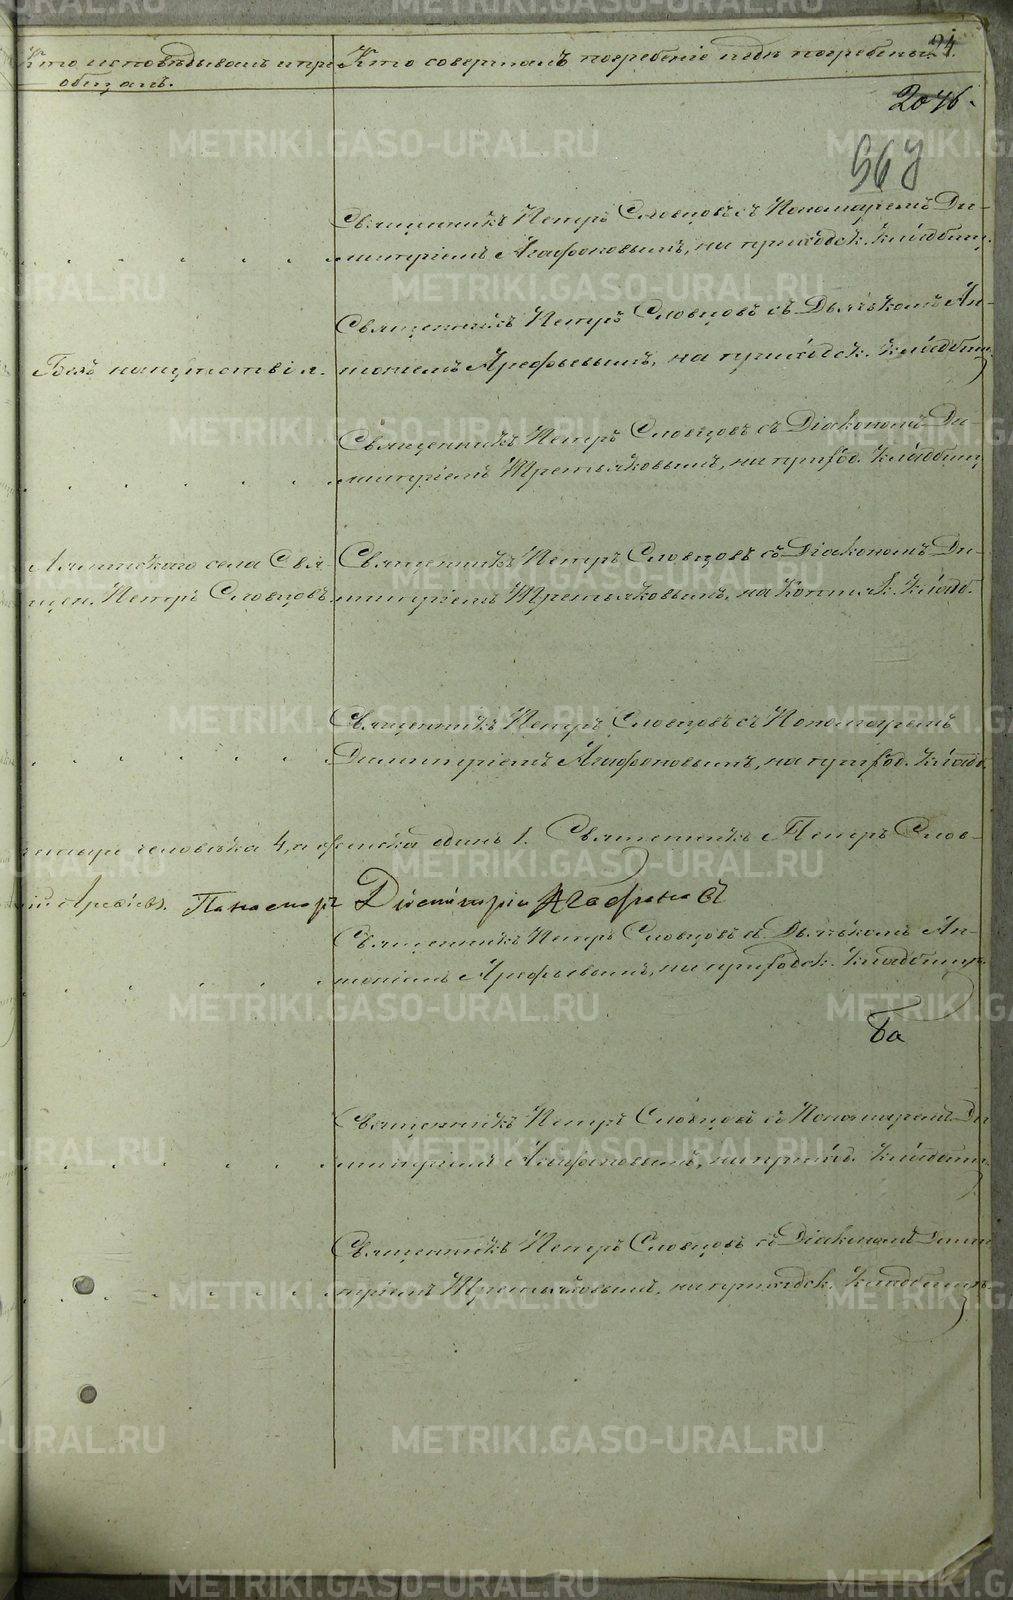 Кто исповѣдывалъ и прі-
общалъ.
Кто совершалъ погребеніе и гдѣ погребены.
94.
2046.
567
Священникъ Петръ Словцовъ съ Пономаремъ Ди-
митріемъ Агафоновымъ, на приходск. кладбищ.
Священникъ Петръ Словцовъ съ Дьячкомъ Ан-
Безъ напутствія.
тоніемъ Арефьевымъ, на приходск. кладбищ.
Священникъ Петръ Словцовъ съ Діакономъ Ди-
митріемъ Третьяковымъ, на приход. кладбищ.
села Свя-
щен. Петръ Словцовъ.
Священникъ Петръ Словцовъ съ Діакономъ Ди-
митріемъ Третьяковымъ, на кладб.
Священникъ Петръ Словцовъ съ Пономаремъ
Димитріемъ Агафоновымъ, на приход. кладб.
человѣка 4, а женска одинъ 1. Священникъ Петръ Слов-
Панамарь Дімитрій Агафановъ
Священникъ Петръ Словцовъ съ Дьячкомъ Ан-
тоніемъ Арефьевымъ, на приходск. кладбищѣ.
Ба
Священникъ Петръ Словцовъ съ Пономаремъ Ди
митріемъ Агафоновымъ, на приход. кладбищ.
Священникъ Петръ Словцовъ съ Діакономъ Дими
тріемъ Третьяковымъ, на приходск. кладбищѣ.
METRIKI.GASO-URAL.RU